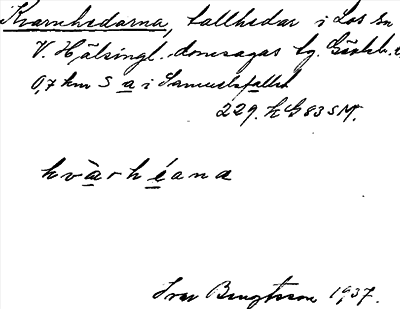 Kvarnhedarna, tallhedar i Los sn
V. Hälsingl. domsagas tg. Gävleb. l.
0,7 km S a i Samuelsfallet
229. h G 83 SM.
kvàrhéana
Ivar Bengtsson 1937.